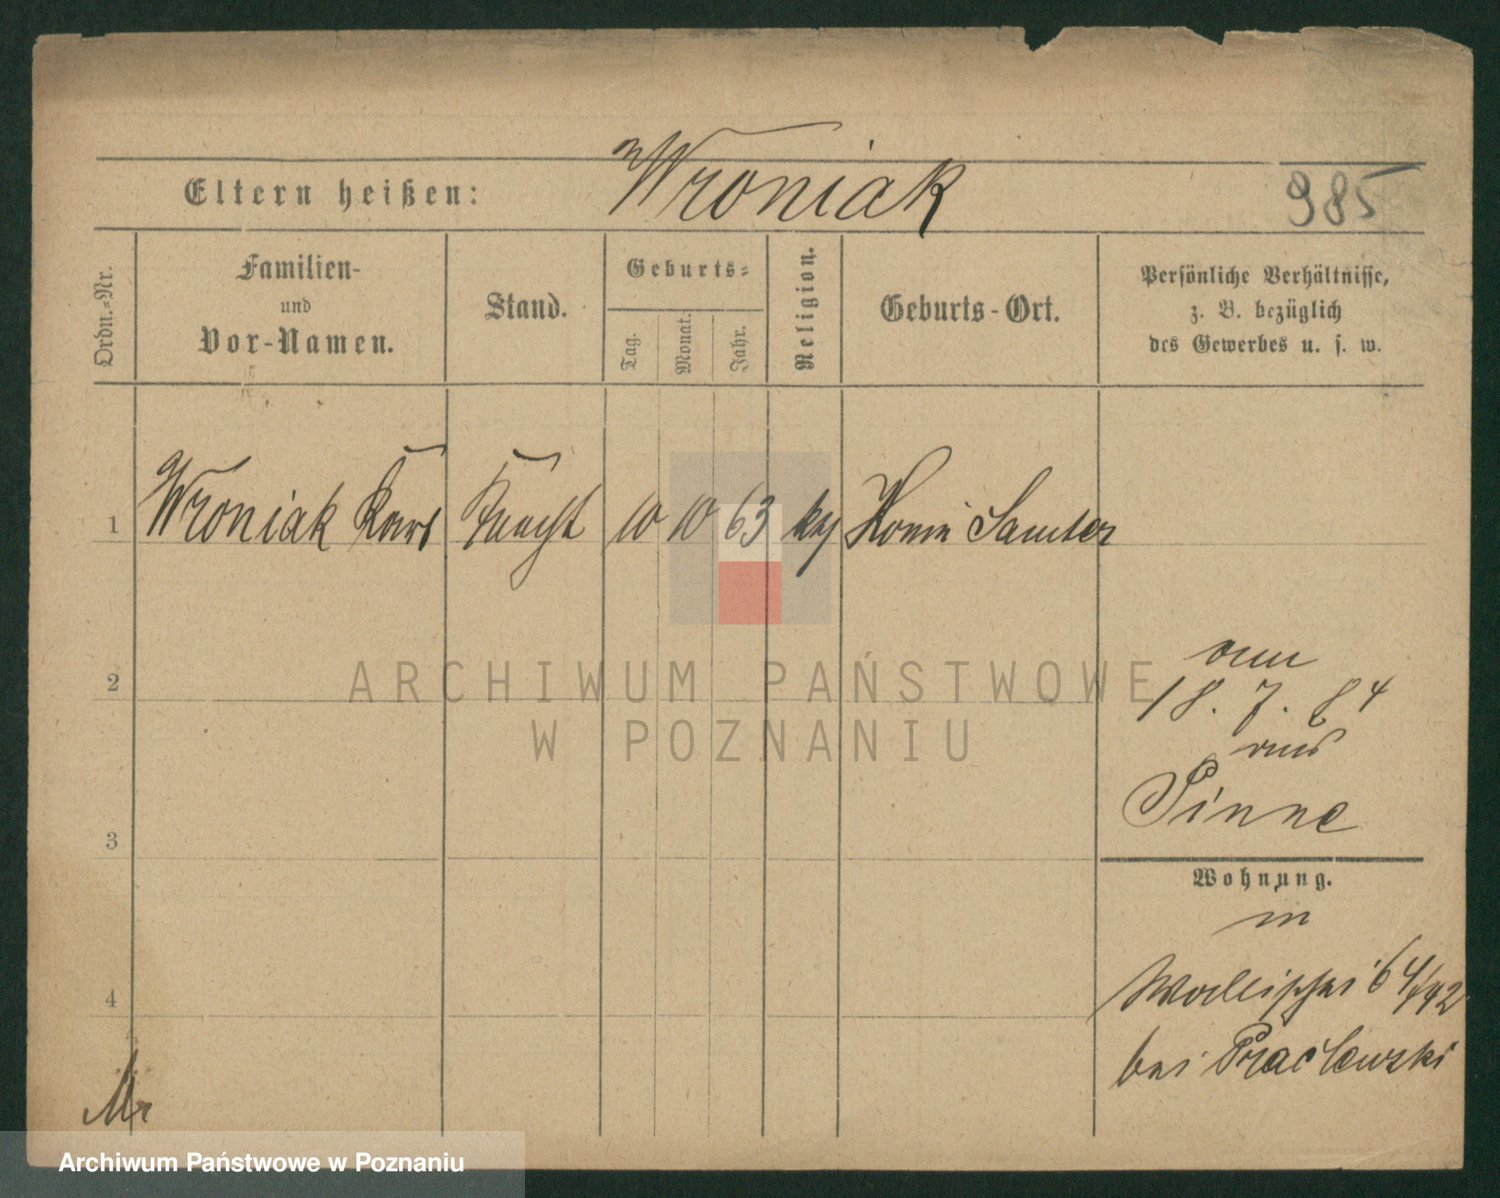 Eltern heißen:
Wroniak
985
Ordn.-Nr.
Familien-
und
Vor-Namen.
Stand.
Geburts-
Tag.
Monat.
Jahr.
Religion.
Geburts-Ort.
Persönliche Verhältnisse,
z. B. bezüglich
des Gewerbes u. s. w.
1 Wroniak Karl Knecht 10 10 63 Samter
2
3
4
18. 7. 84
aus
Pinne
Wohnung.
in
Wallischei
bei
ARCHIWUM PAŃSTWOWE
W POZNANIU
Archiwum Państwowe w Poznaniu